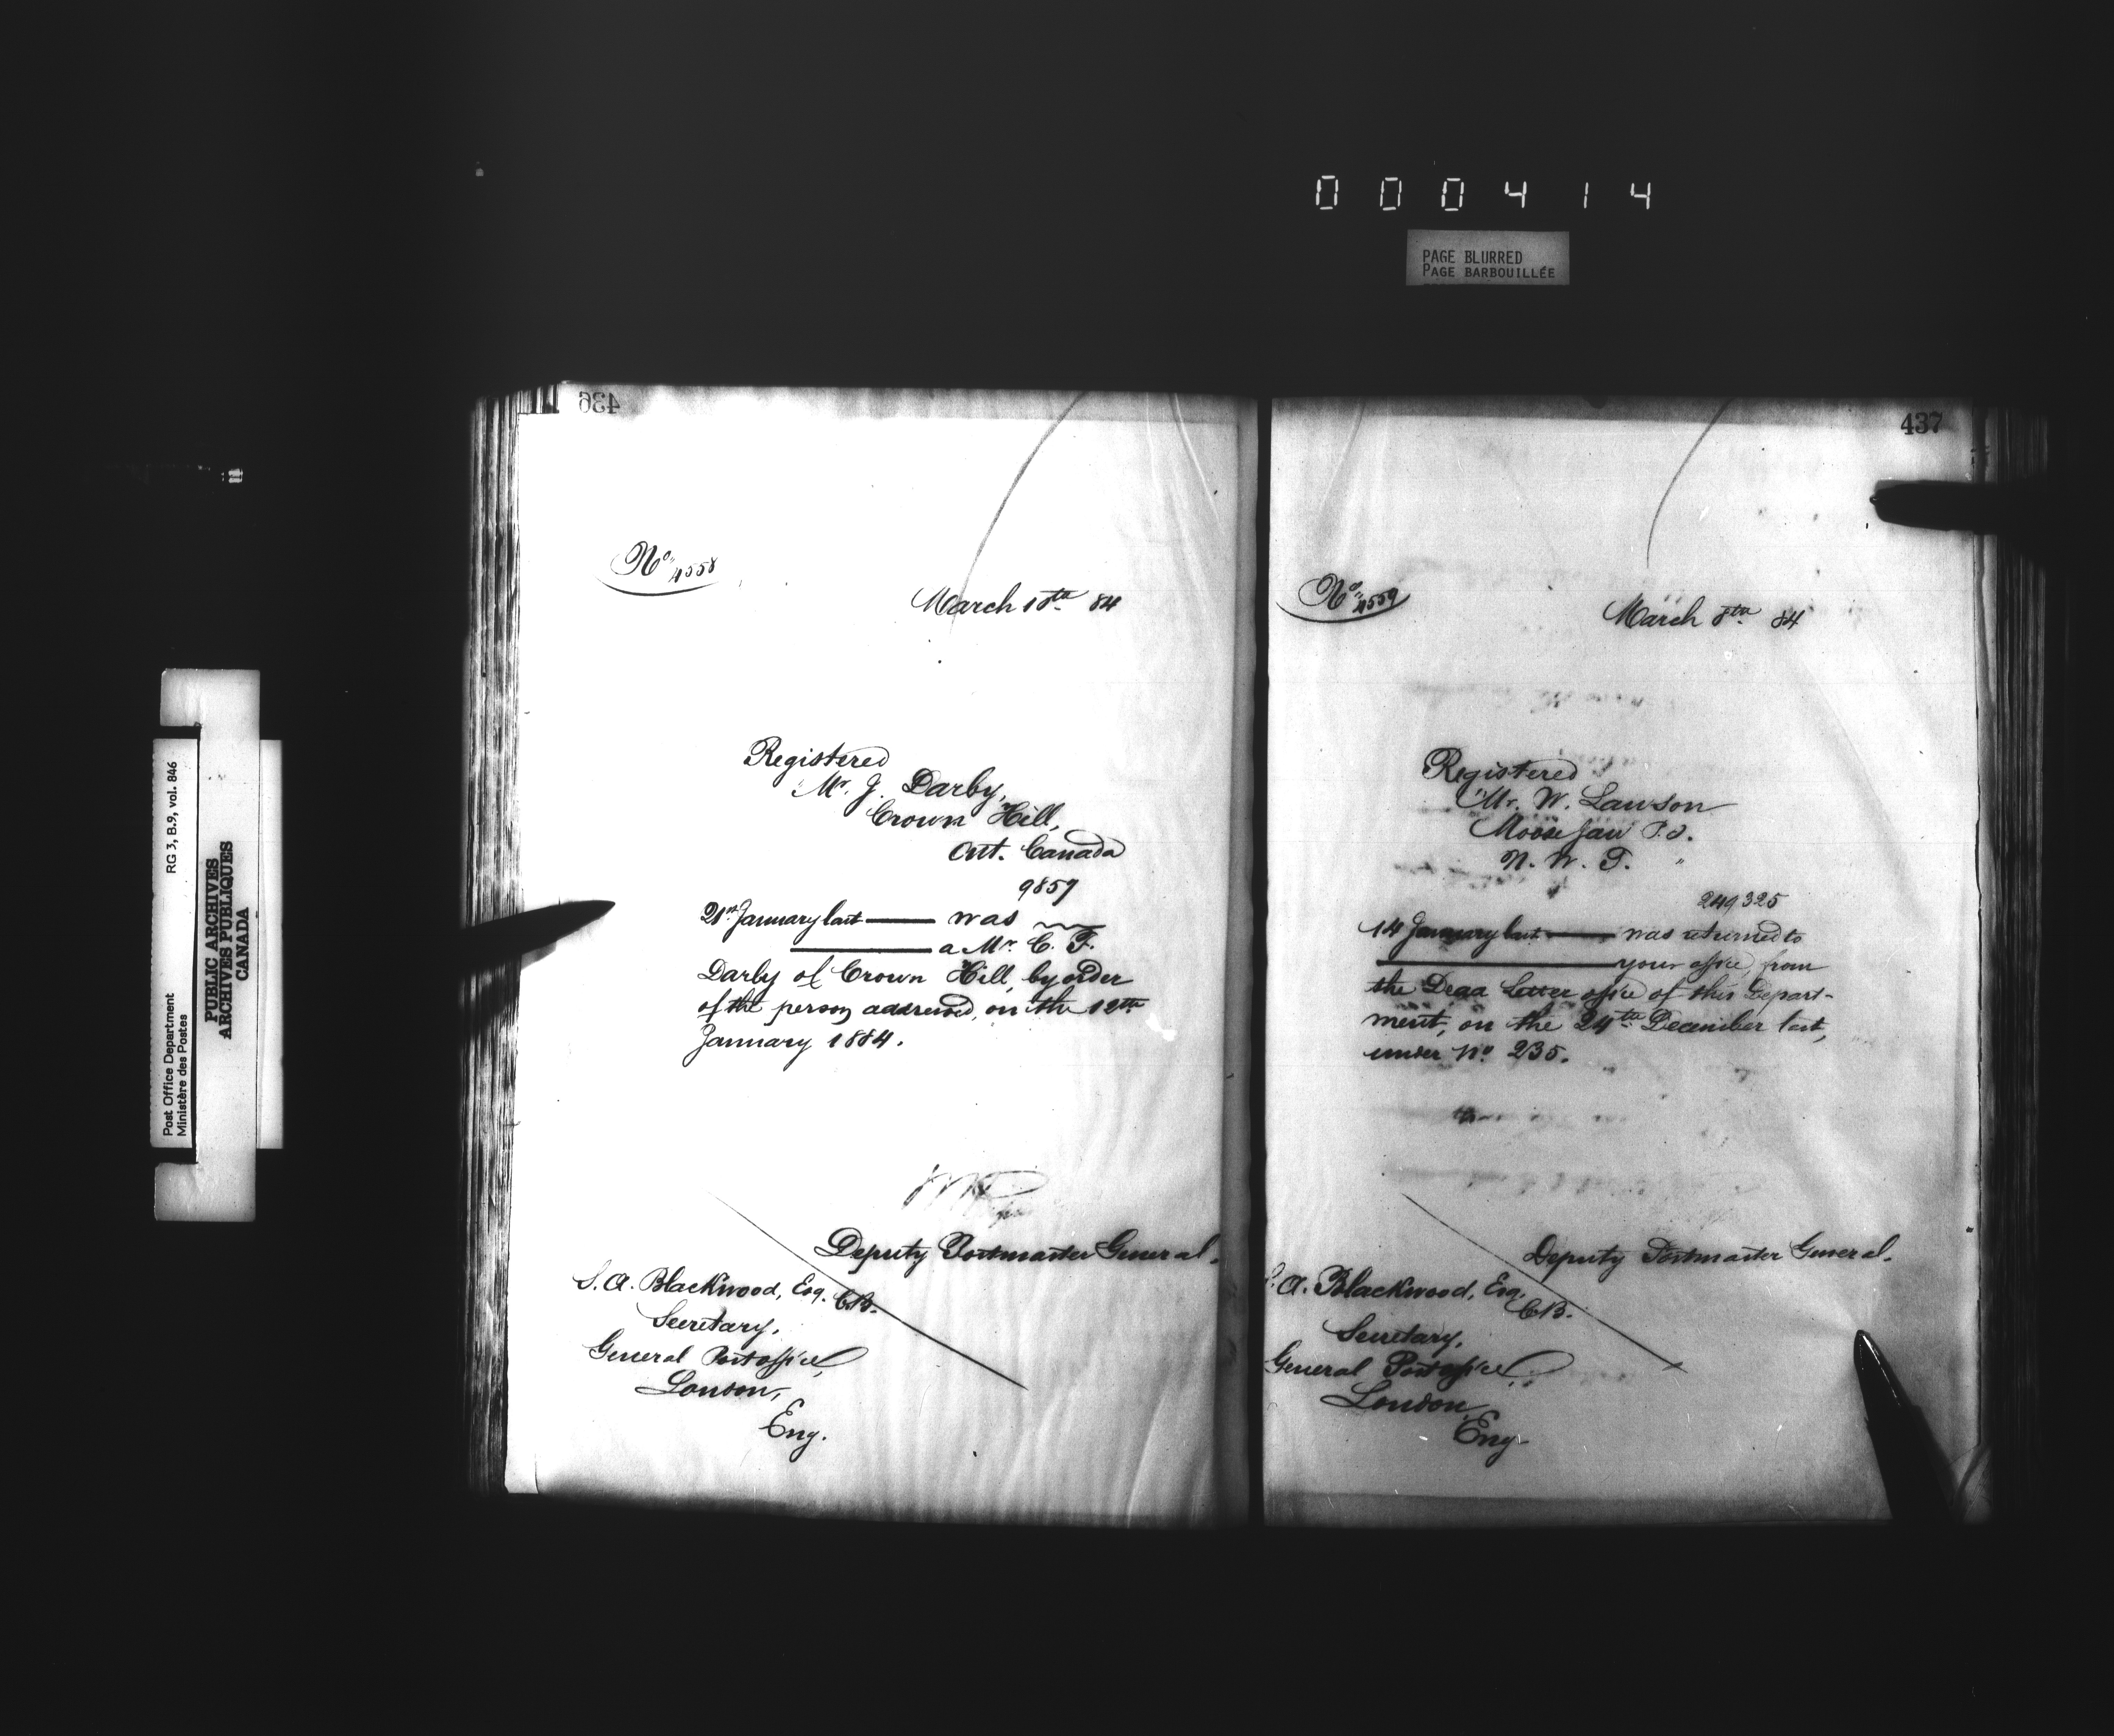 000414
PAGE BLURRED
PAGE BARBOUILLÉE
Post Office Department
Ministère des Postes
RG 3, B.9, vol. 846
PUBLIC ARCHIVES
ARCHIVES PUBLIQUES
CANADA
436
No. 4558
March 18th 84
Registered
Mr. J. Darby,
Crown Hill,
Ont. Canada
9859
21st January last was
a Mr. C. F.
Darby of Crown Hill, by order
of the person addressed, on the 12th
January 1884.
Deputy Postmaster General.
S. A. Blackwood, Esq. C.B.
Secretary,
General Post office,
London,
Eng.
437
No. 4559
March 8th 84
Registered
Mr. W. Lawson
Moose Jaw P.O.
N. W. T.
249325
14 January last was returned to
your office, from
the Dead Letter office of this Depart-
ment, on the 24th December last,
under No. 235.
Deputy Postmaster General.
S. A. Blackwood, Esq.
C.B.
Secretary,
General Post office,
London,
Eng